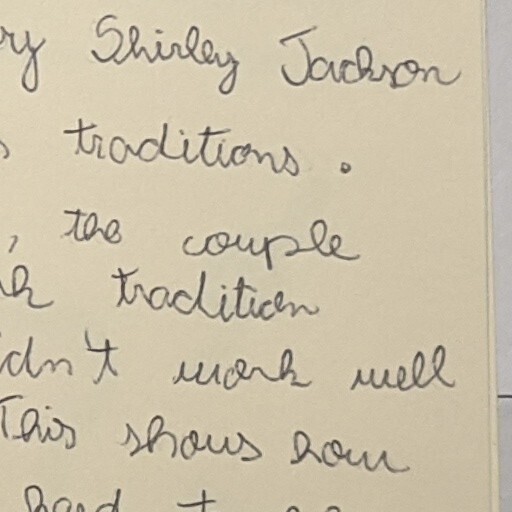 ry Shirley Jackson
s traditions.
, the couple
tradition
idn't work well
This shows how
hard t